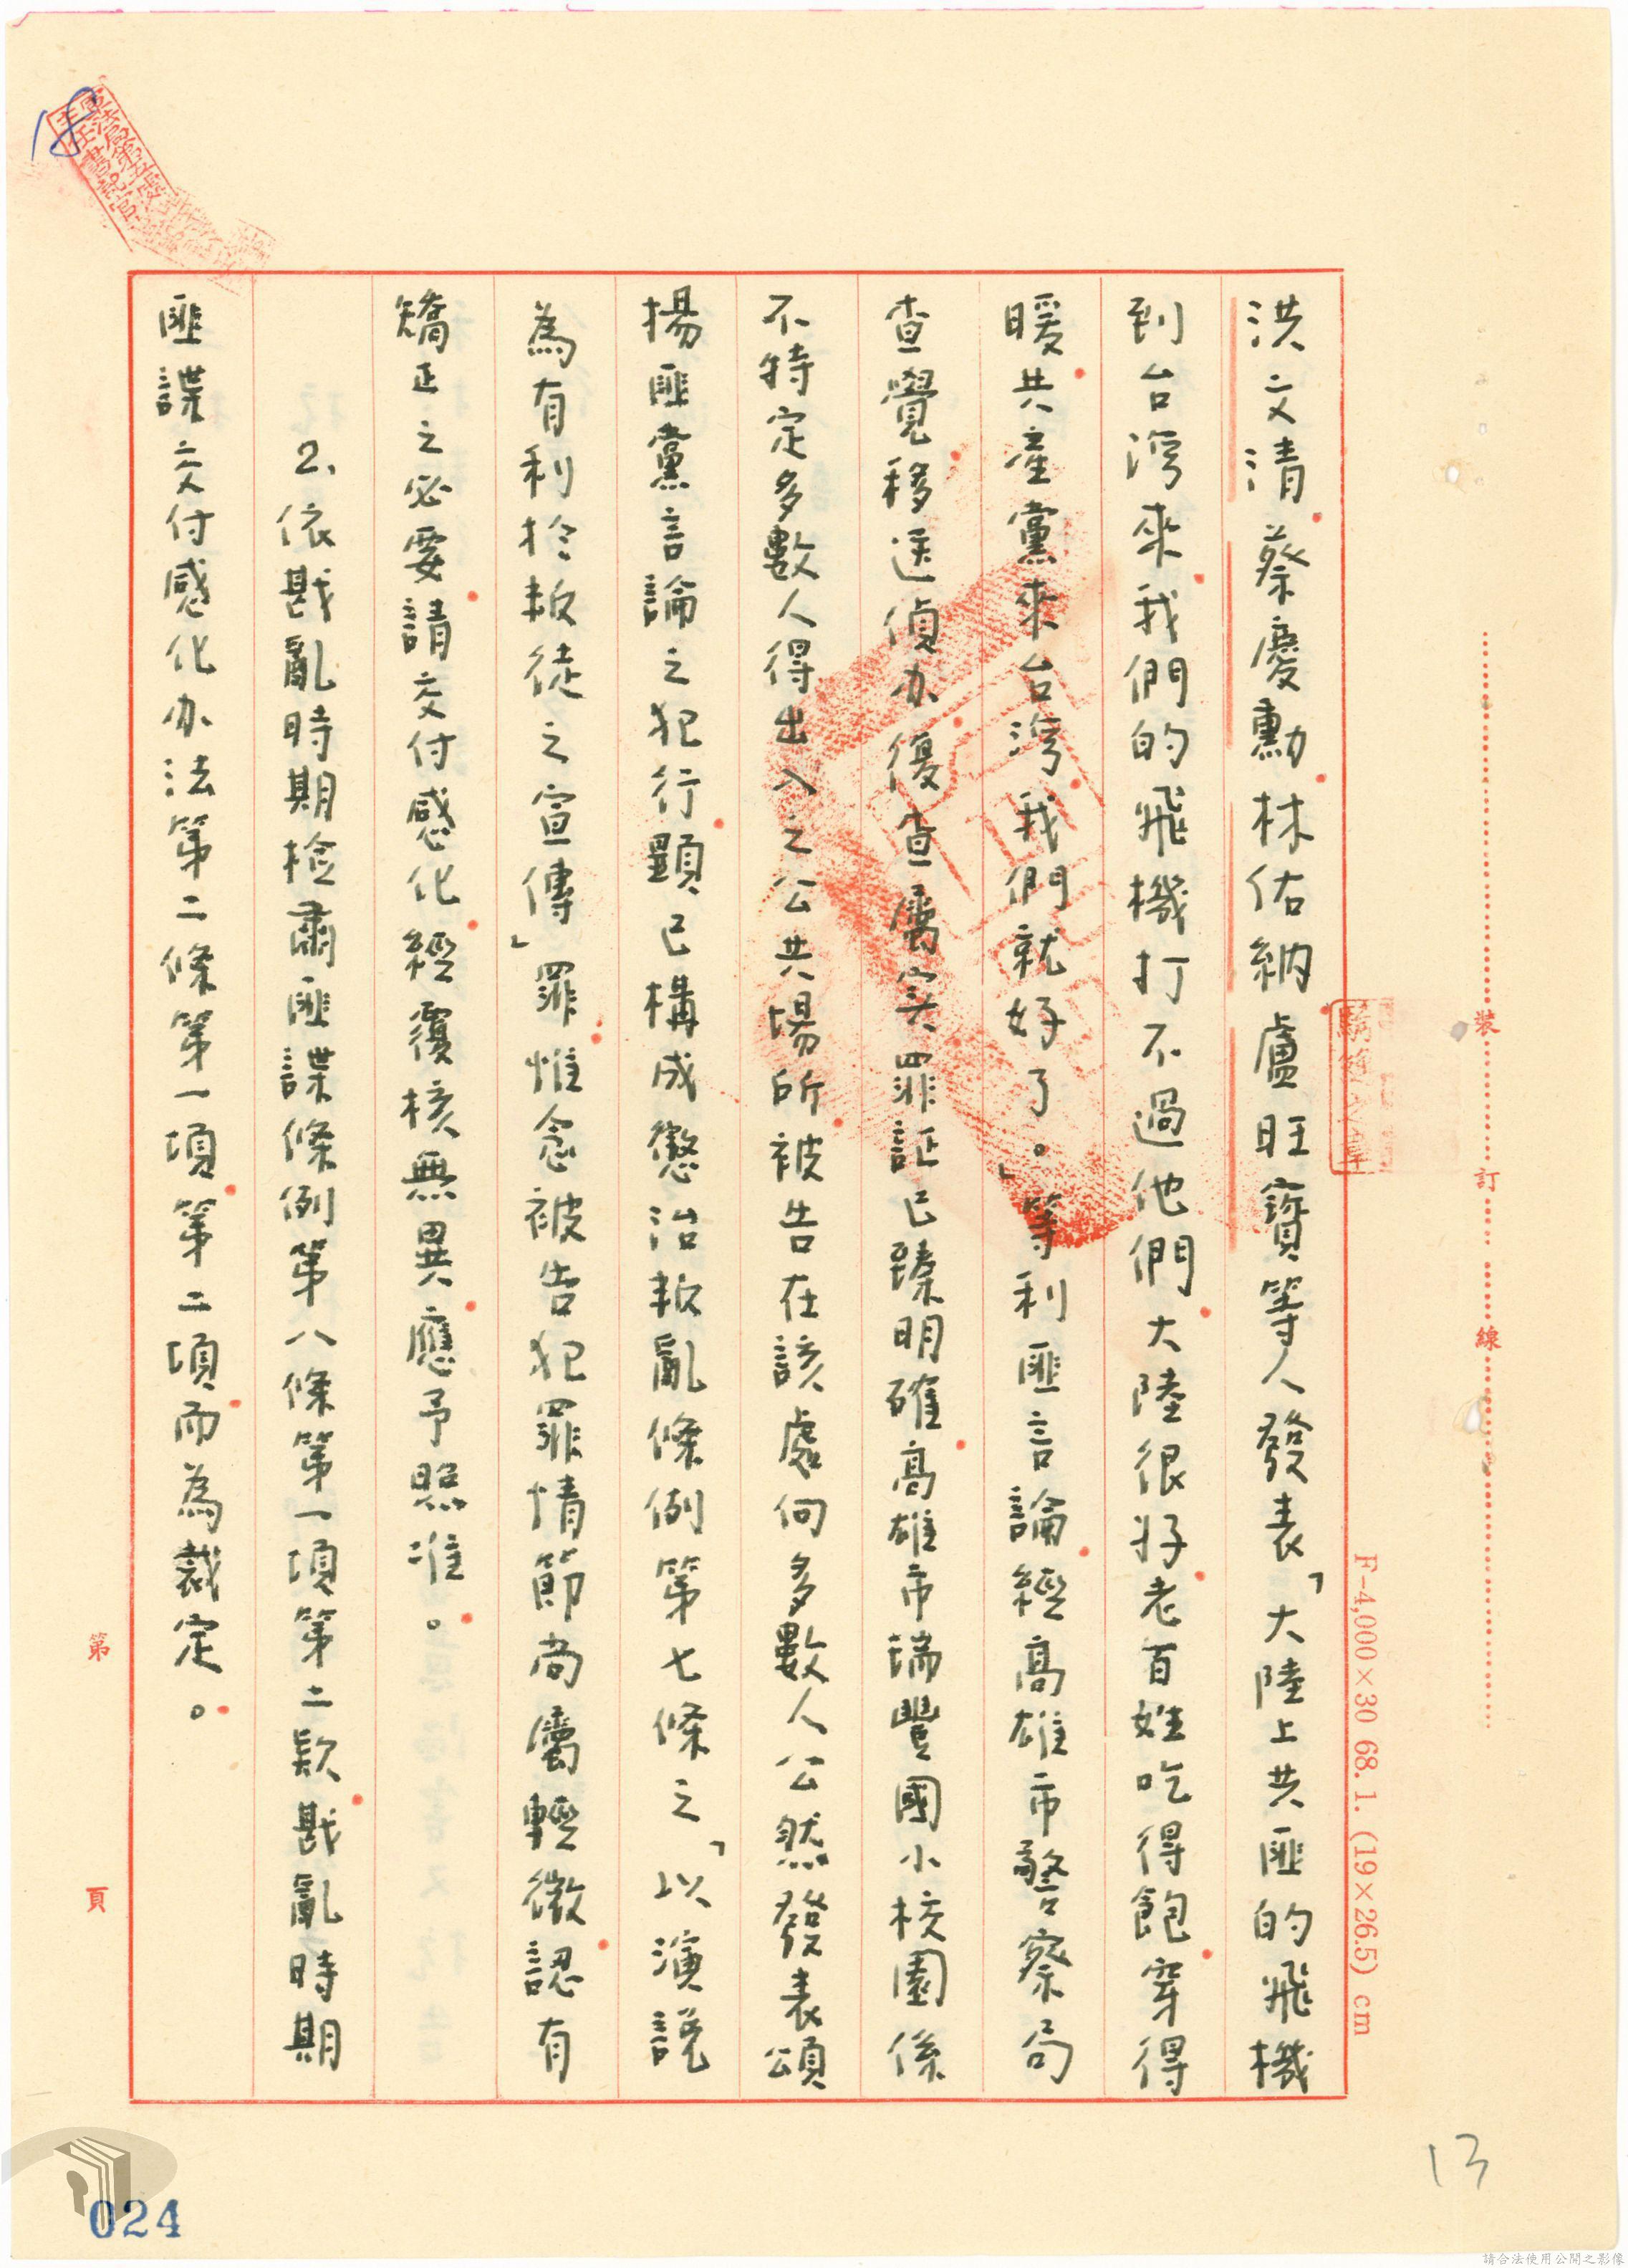 洪文清蔡慶勳林佑納盧旺寶等人發表「大陸上共匪的飛機
到台灣來我們的飛機打不過他們大陸很好老百姓吃得飽穿得
暖共產黨來台灣我們就好了。」等利匪言論經高雄市警察局
查覺移送偵办復查屬实罪証已臻明確高雄市瑞豐國小校園係
不特定多數人得出入之公共場所被告在該處向多數人公然發表頌
揚匪黨言論之犯行顯已構成懲治叛亂條例第七條之「以演說
為有利於叛徒之宣傳」罪惟念被告犯罪情節尚屬輕微認有
矯正之必要請交付感化經覆核無異應予照准。
2、依戡亂時期檢肅匪諜條例第八條第一項第二款戡亂時期
匪諜交付感化办法第二條第一項第二項而為裁定。
裝
訂
線
F-4,000×30 68.1. (19×26.5) cm
第
頁
18
13
024
請合法使用公開之影像